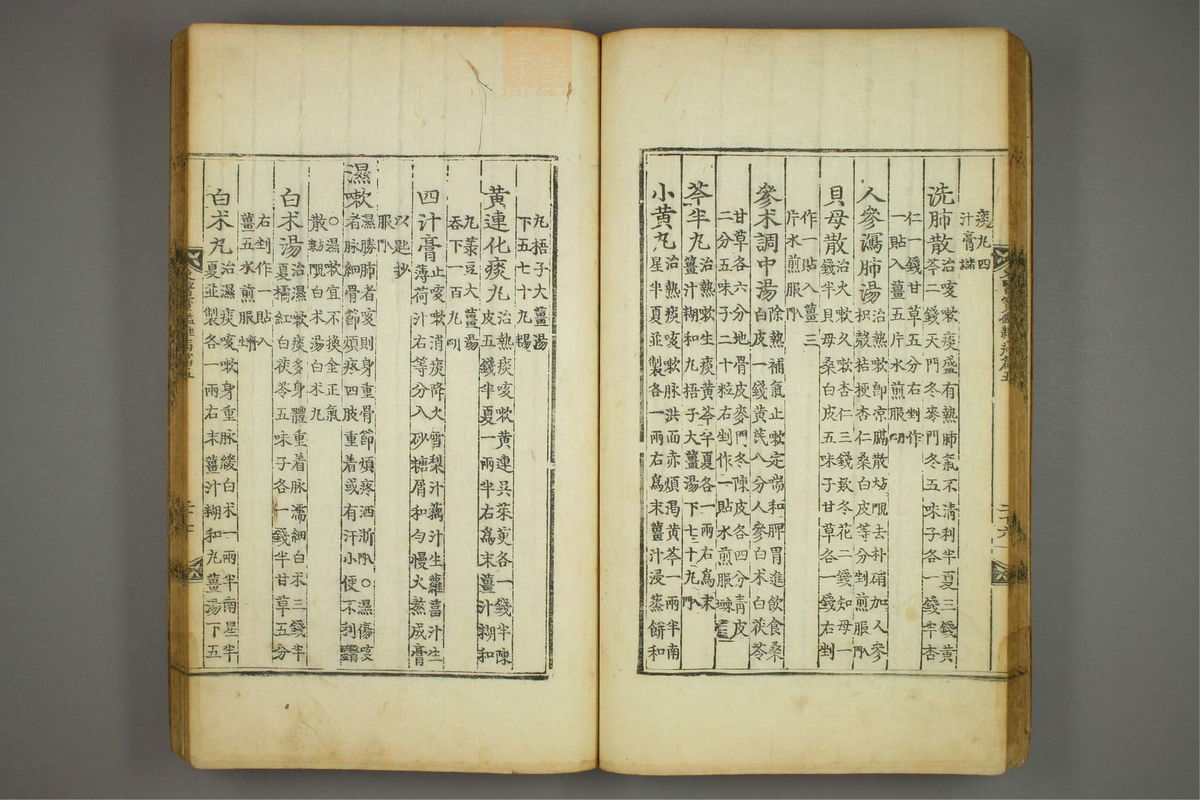 痰丸四
汁膏
洗肺散治咳嗽痰盛有熱肺氣不淸利半夏三錢黃
芩二錢天門冬麥門冬五味子各一錢半杏
仁一錢甘草五分右剉作
一貼入薑五片水煎服
人參瀉肺湯治熱嗽卽凉膈散去朴硝加人參
枳殼桔梗杏仁桑白皮等分剉煎服
貝母散治火嗽久嗽杏仁三錢款冬花二錢知母一
錢半貝母桑白皮五味子甘草各一錢右剉
作一貼入薑三
片水煎服
參朮調中湯除熱補氣止嗽定喘和脾胃進飮食桑
白皮一錢黃芪八分人參白朮白茯苓
甘草各六分地骨皮麥門冬陳皮各四分靑皮
二分五味子二十粒右剉作一貼水煎服
芩半丸治熱嗽生痰黃芩半夏各一兩右爲末
薑汁糊和丸梧子大薑湯下七十丸
小黃丸治熱痰咳嗽脉洪面赤煩渴黃芩一兩半南
星半夏並製各一兩右爲末薑汁浸蒸餠和
丸梧子大薑湯
下五七十丸
黃連化痰丸治熱痰咳嗽黃連吳茱萸各一錢半陳
皮五錢半夏一兩半右爲末薑汁糊和
丸菉豆大薑湯
吞下一百丸
四汁膏止咳嗽消痰降火雪梨汁藕汁生蘿葍汁生
薄荷汁右等分入砂糖屑和勻慢火熬成膏
以匙抄
服
濕嗽濕勝肺者咳則身重骨節煩疼洒淅○濕傷咳
者脉細骨節煩疼四肢重着或有汗小便不利
○濕嗽宜不換金正氣
散白朮湯白朮丸
白朮湯治濕嗽痰多身體重着脉濡細白朮三錢半
夏橘紅白茯苓五味子各一錢半甘草五分
右剉作一貼入
薑五水煎服
白朮丸治濕痰咳嗽身重脉緩白朮一兩半南星半
夏並製各一兩右末薑汁糊和丸薑湯下五